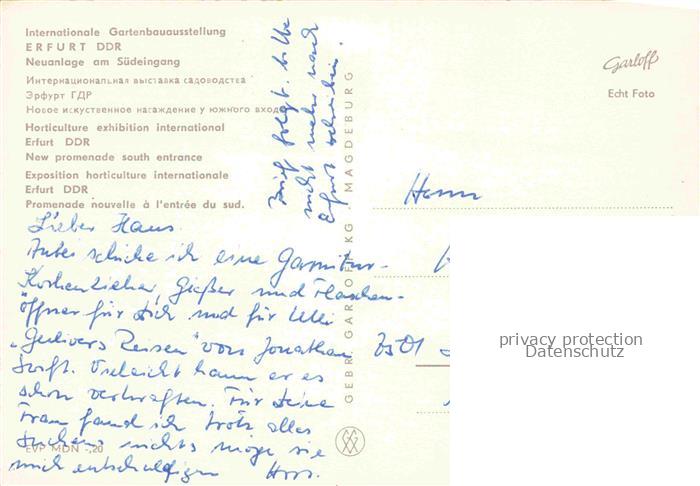 Internationale Gartenbauausstellung
ERFURT DDR
Neuanlage am Südeingang
Интернациональная выставка садоводства
Эрфурт ГДР
Новое искуственное насаждение у южного входа
Horticulture exhibition international
Erfurt DDR
New promenade south entrance
Exposition horticulture internationale
Erfurt DDR
Promenade nouvelle à l'entrée du sud.
Brief folgt. bitte
nicht mehr nach
Erfurt schreiben.
Lieber Hans
Anbei schicke ich eine Garnitur-
Korkenzieher, Gießer und Flaschen-
öffner für Dich und für Ulli
„Gulivers Reisen" von Jonathan
Swift. Vieleicht kann er es
schon verkraften. Für Deine
Frau fand ich trotz alles
Suchens nichts möge sie
mich entschuldigen
EVP MDN -,20
GEBR. GARLOFF KG, MAGDEBURG
Garloff
Echt Foto
Herrn
7501
privacy protection
Datenschutz